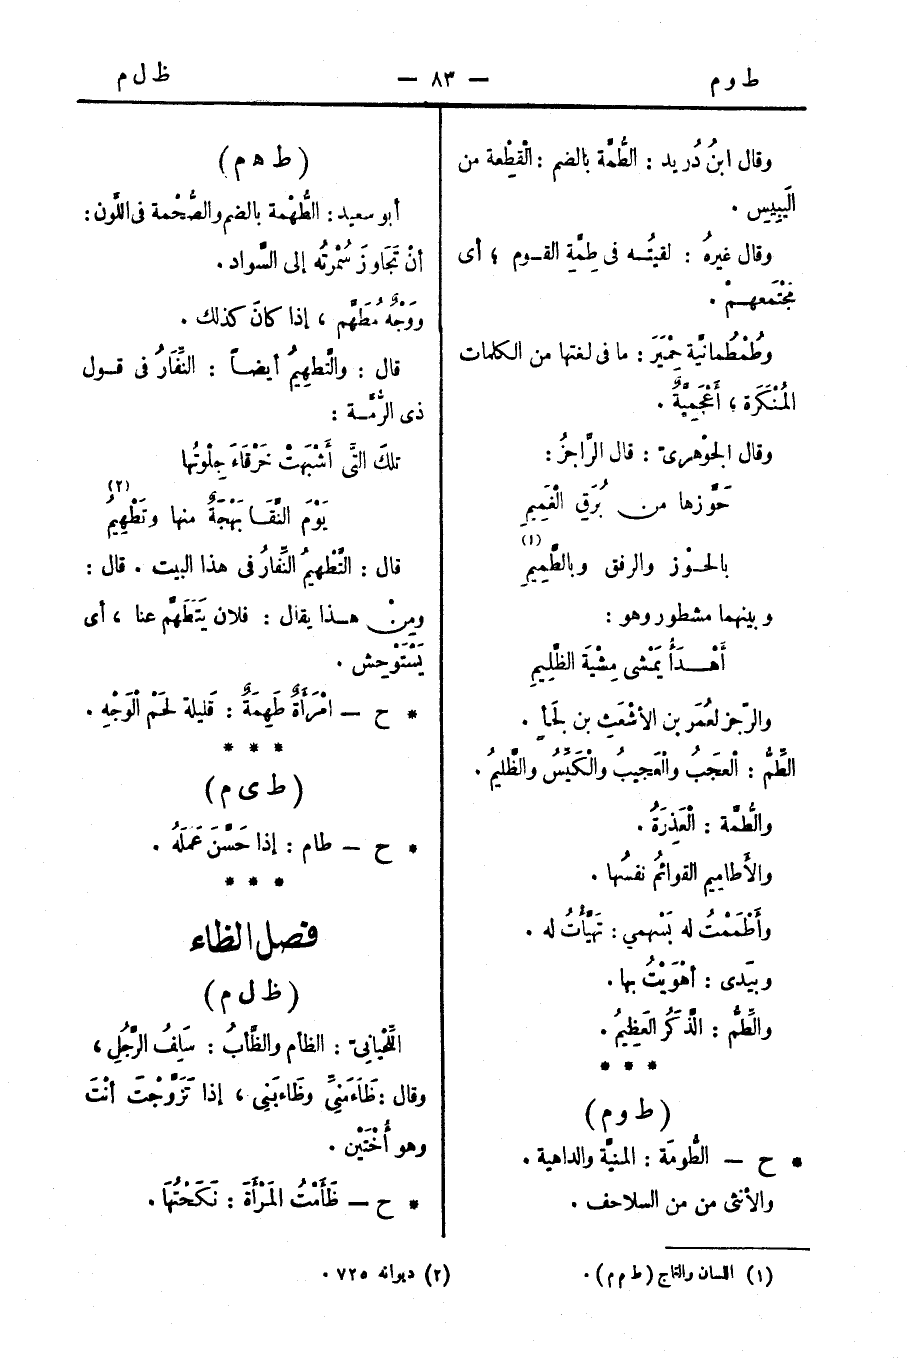 ط و م — ٨٣ — ظ ل م
وقال ابنُ دُريد : الطُّمَّة بالضم : الْقِطْعة من
الْيَبِيس .
وقال غيرهُ : لقيتُـه فى طِمَّةِ القـوم ؛ أى
مُجْتَمعهـمْ .
وطُمْطُمانيَّة حِمْيَرَ : ما فى لغتها من الكلمات
المُنْكَرَة ؛ أَعْجَمِيَّةٌ .
وقال الجوْهرىّ : قال الرَّاجزُ :
حَوَّزها من بُرَقِ الْغَمِيمِ
بالحـوْز والرفق وبالطَّمِيمِ (١)
وبينهما مشطور وهو :
أَهْـدَأُ يَمْشى مِشْيَةَ الظَّلِيمِ
والرّجز لعُمَر بن الأشْعَثِ بن لَجَأٍ .
الطِّمُّ : الْعَجَبُ والْعَجيبُ والْكَيِّسُ والظَّليمُ .
والطُّمَّة : الْعَذِرَةُ .
والأَطاميم القوائمُ نفسُها .
وأَطْمَمْتُ له بَسْهمي : تهيَّأْتُ له .
وبيَدى : أهْوَيْتُ بها .
والطِّمُّ : الذَّكَرُ العَظِيمُ .
* * *
( ط و م )
* ح — الطُّومَة : المنيَّة والداهية .
والأنثى من من السلاحف .
( ط ه م )
أبو سعيد : الطُّهْمة بالضم والصُّحْمة فى اللَّون :
أنْ تَجَاوزَ سُمْرتُه إلى السَّواد .
ووَجْهٌ مُطَهَّم ، إذا كانَ كذلك .
قال : والتَّطهِيمُ أيضـاً : النِّفَارُ فى قـول
ذى الرُّمَّـة :
تلكَ التَّى أَشْبَهَتْ خَرْقَاءَ جِلْوتُها
يَوْمَ النَّقَـا بَهْجَةٌ منها وتَطْهِيمُ (٢)
قال : التَّطْهيمُ النِّفارُ فى هذا البيت . قال :
ومِنْ هـذا يقال : فلان يَتَطَهَّم عنا ، أى
يَسْتَوْحِش .
* ح — امْرَأةٌ طَهِمَةٌ : قَليلة لَحْم الْوَجْهِ .
* * *
( ط ى م )
* ح — طام : إذا حَسَّنَ عَمَلَهُ .
* * *
فصل الظاء
( ظ ل م )
اللِّحْيانىّ : الظأم والظَّأبُ : سَلِفُ الرَّجُلِ ،
وقال : ظَاءَمَنِىّ وظَاءبَنِى ، إذا تَزَوَّجْتَ أنْتَ
وهو أُخْتَيْن .
* ح — ظَأَمْتُ المَرْأةَ : نَكَحْتُهَا .
(١) اللسان والتاج ( ط م م ) .
(٢) ديوانه ٧٢٥ .